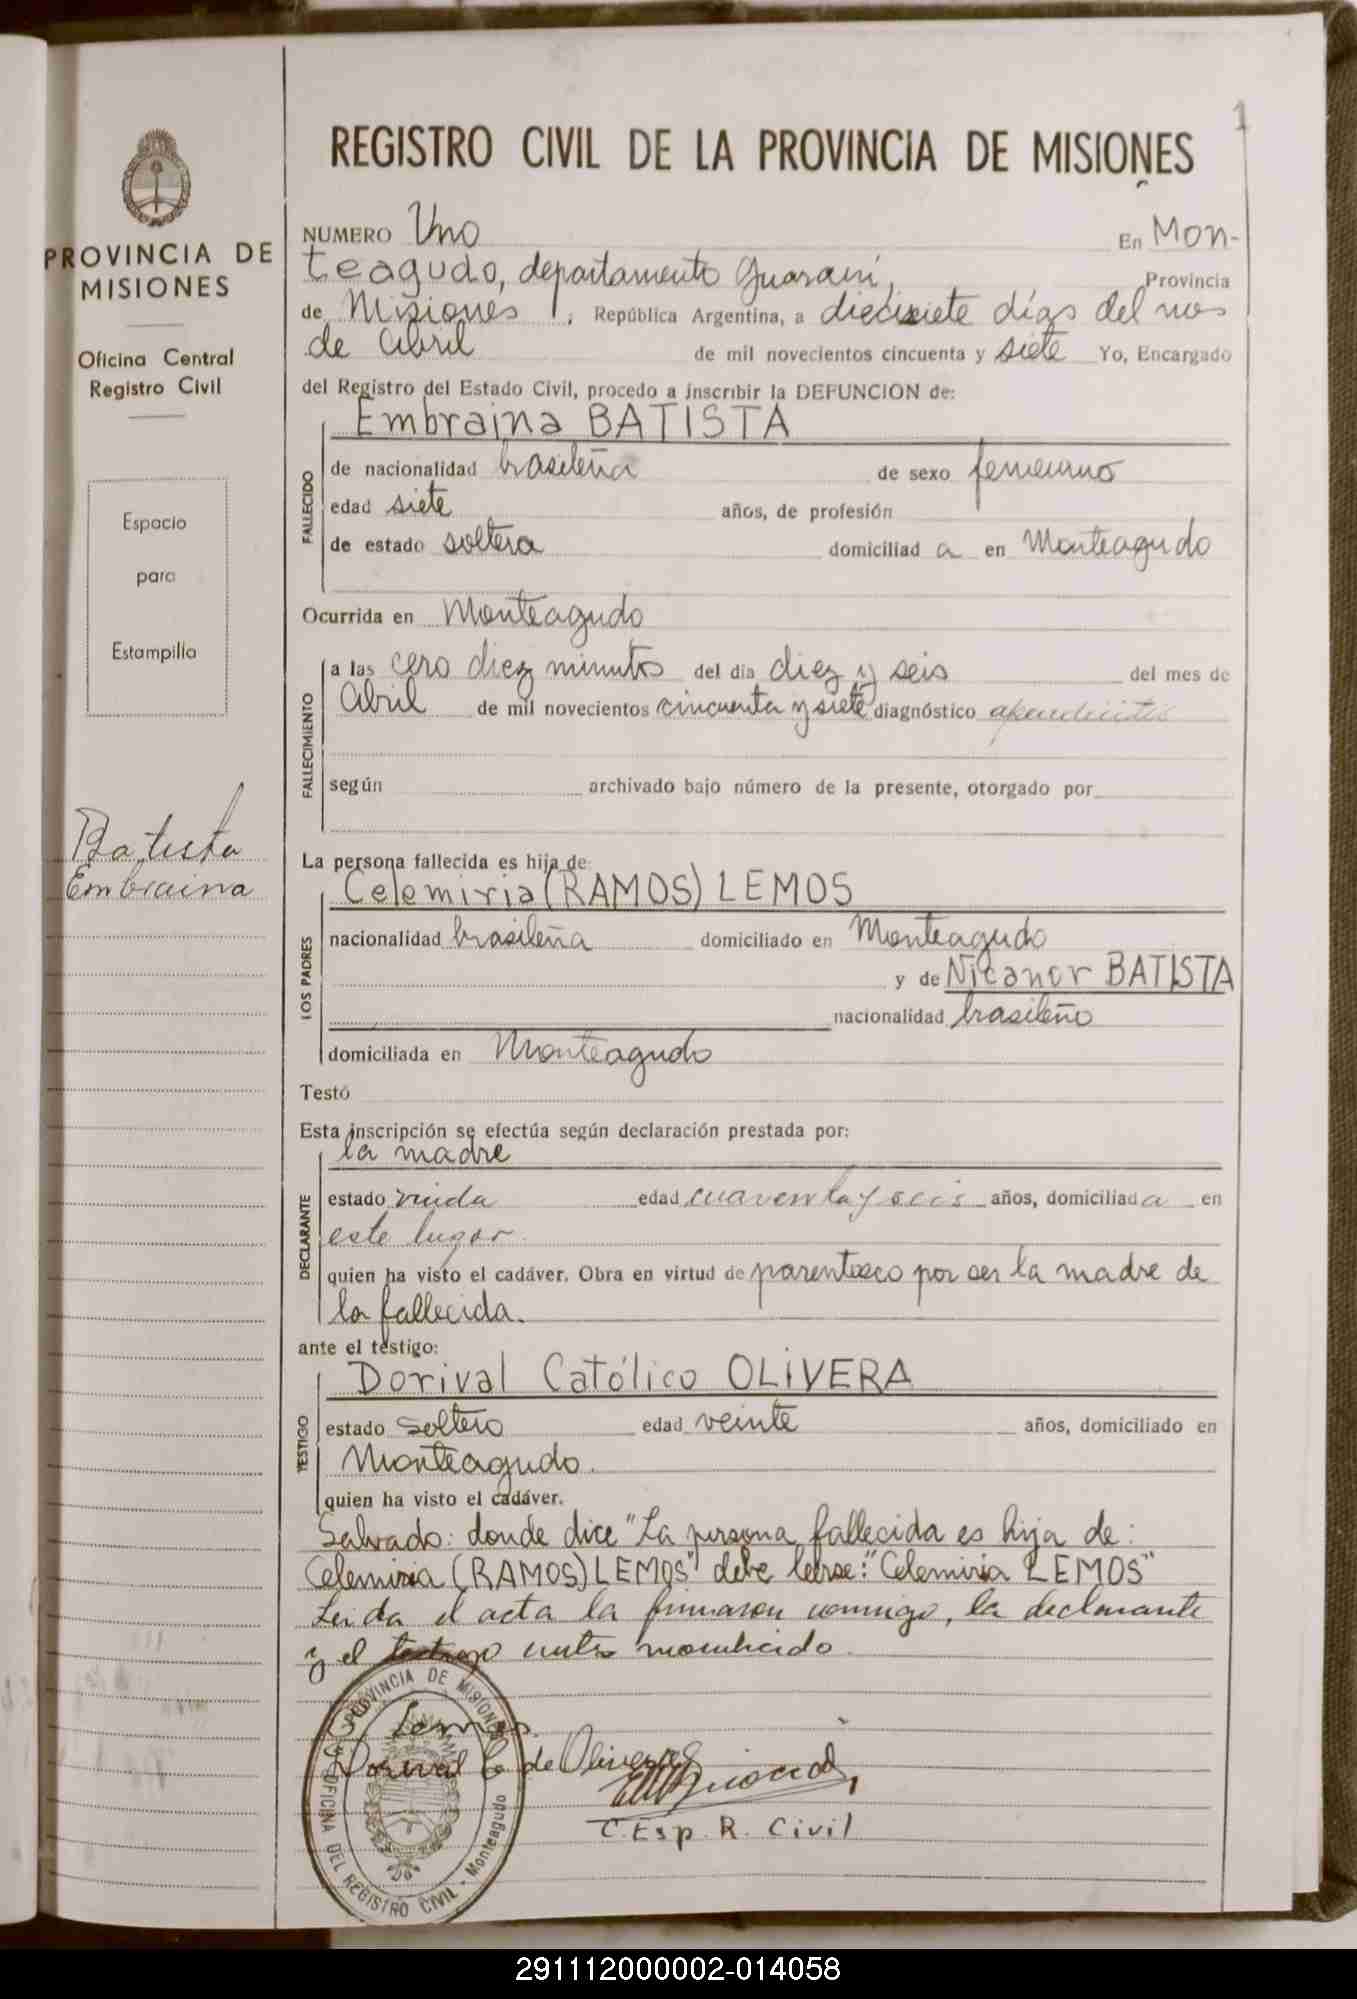 1
REGISTRO CIVIL DE LA PROVINCIA DE MISIONES
PROVINCIA DE
MISIONES
Oficina Central
Registro Civil
Espacio
para
Estampilla
Batista
Embraina
NUMERO Uno En Mon-
teagudo, departamento Guaraní, Provincia
de Misiones, República Argentina, a diecisiete días del mes
de Abril de mil novecientos cincuenta y siete Yo, Encargado
del Registro del Estado Civil, procedo a inscribir la DEFUNCION de:
Embraina BATISTA
FALLECIDO
de nacionalidad brasileña de sexo femenino
edad siete años, de profesión
de estado soltera domiciliad a en Monteagudo
Ocurrida en Monteagudo
FALLECIMIENTO
a las cero diez minutos del día diez y seis del mes de
Abril de mil novecientos cincuenta y siete diagnóstico apendicitis
según archivado bajo número de la presente, otorgado por
La persona fallecida es hija de:
Celemiria (RAMOS) LEMOS
LOS PADRES
nacionalidad brasileña domiciliado en Monteagudo
y de Nicanor BATISTA
nacionalidad brasileño
domiciliada en Monteagudo
Testó
Esta inscripción se efectúa según declaración prestada por:
la madre
DECLARANTE
estado viuda edad cuarenta y seis años, domiciliad a en
este lugar
quien ha visto el cadáver. Obra en virtud de parentesco por ser la madre de
la fallecida.
ante el testigo:
Dorival Católico OLIVERA
TESTIGO
estado soltero edad veinte años, domiciliado en
Monteagudo.
quien ha visto el cadáver.
Salvado: donde dice "La persona fallecida es hija de:
Celemiria (RAMOS) LEMOS" debe leerse: "Celemiria LEMOS"
Leida el acta la firmaron conmigo, la declarante
y el testigo antes mencionado.
PROVINCIA DE MISIONES
OFICINA DEL REGISTRO CIVIL - Monteagudo
Lemos.
Dorival C de Olivera
C. Esp. R. Civil
291112000002-014058